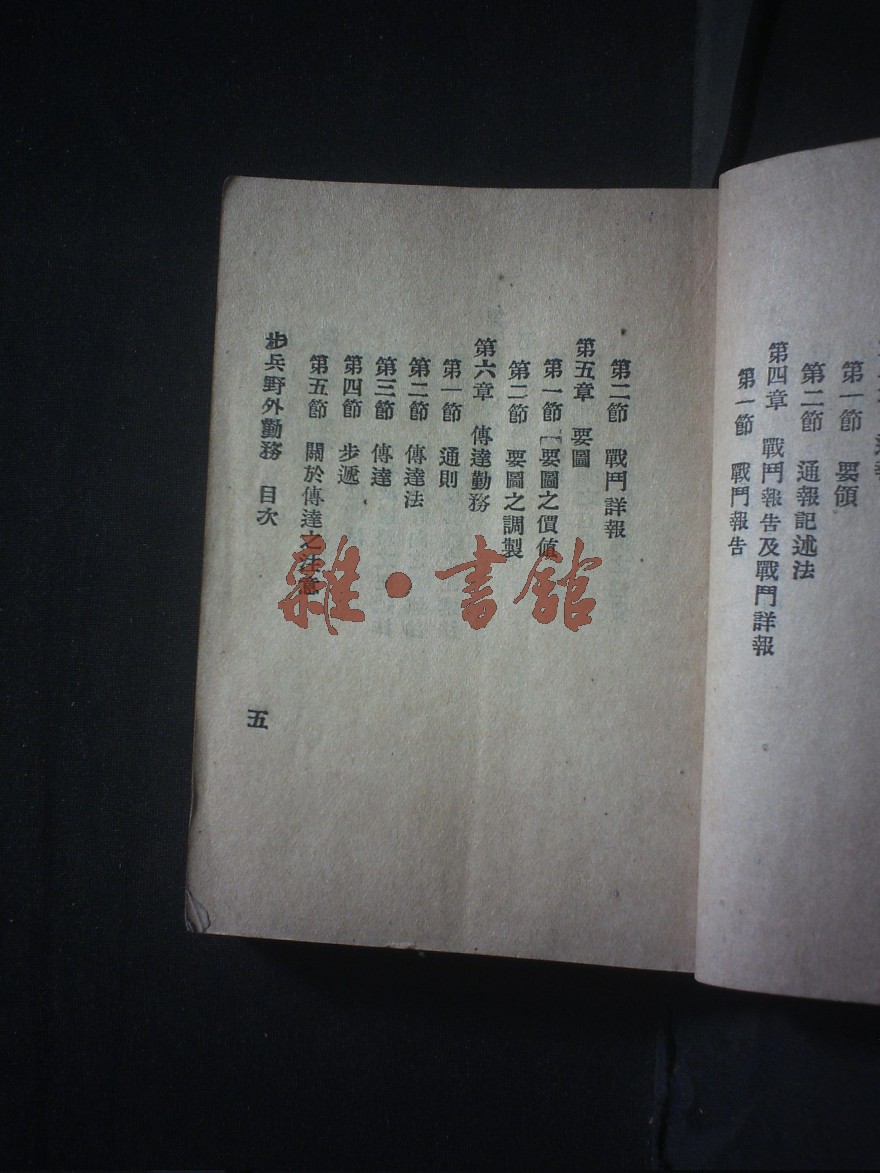 第一節 要領
第二節 通報記述法
第四章 戰鬥報告及戰鬥詳報
第一節 戰鬥報告
第二節 戰鬥詳報
第五章 要圖
第一節 要圖之價值
第二節 要圖之調製
第六章 傳達勤務
第一節 通則
第二節 傳達法
第三節 傳達
第四節 步遞
第五節 關於傳達之注意
步兵野外勤務 目次
五
雜·書館